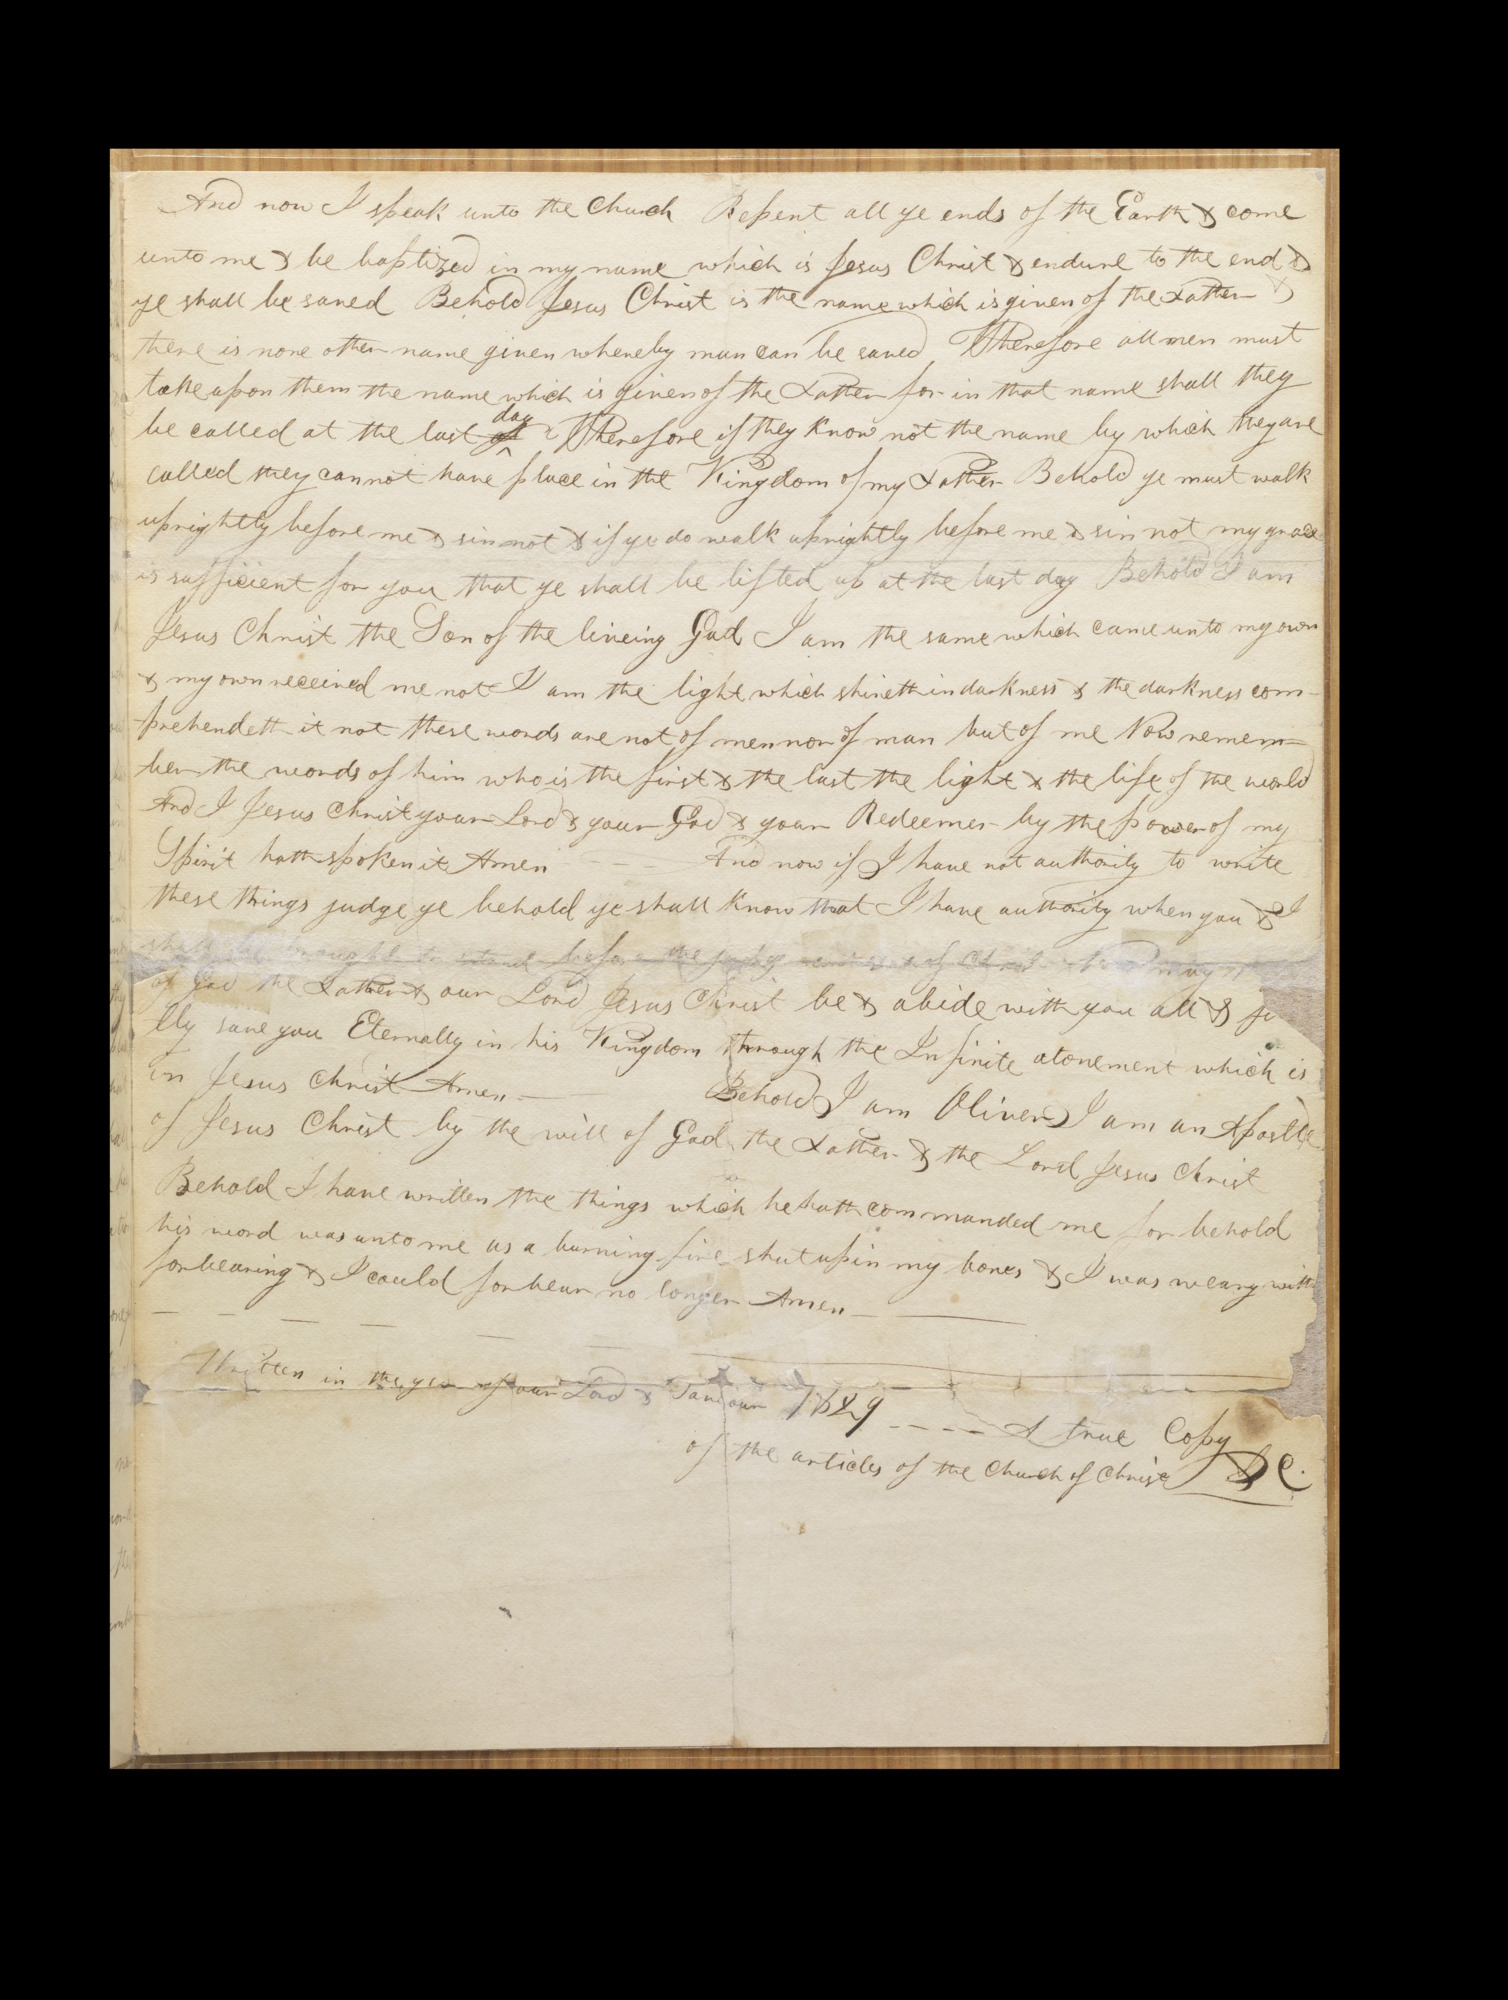 And now I speak unto the Church Repent all ye ends of the Earth & come
unto me & be baptized in my name which is Jesus Christ & endure to the end &
ye shall be saved Behold Jesus Christ is the name which is given of the Father &
there is none other name given whereby man can be saved Wherefore all men must
take upon them the name which is given of the Father for in that name shall they
be called at the last day Wherefore if they know not the name by which they are
called they cannot have place in the Kingdom of my Father Behold ye must walk
uprightly before me & sin not & if ye do walk uprightly before me & sin not my grace
is sufficient for you that ye shall be lifted up at the last day Behold I am
Jesus Christ the Son of the liveing God I am the same which came unto my own
& my own received me not I am the light which shineth in darkness & the darkness com-
prehendeth it not these words are not of men nor of man but of me Now remem-
ber the words of him who is the first & the last the light & the life of the world
And I Jesus Christ your Lord & your God & your Redeemer by the power of my
Spirit hath spoken it Amen — — — And now if I have not authority to write
these things judge ye behold ye shall know that I have authority when you & I
shall be brought to stand before the judgment seat of Christ may
of God the Father & our Lord Jesus Christ be & abide with you all &
lly save you Eternally in his Kingdom through the Infinite atonement which is
in Jesus Christ Amen — — Behold I am Oliver I am an Apostle
of Jesus Christ by the will of God the Father & the Lord Jesus Christ
Behold I have written the things which he hath commanded me for behold
his word was unto me as a burning fire shut up in my bones & I was weary with
forbearing & I could forbear no longer Amen —
Written in the year of our Lord & Saviour 1829 — — — — A true Copy
of the articles of the Church of Christ &C.